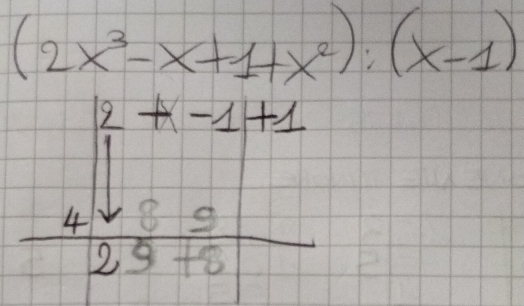 (2x³-x+1+x²):(x-1)
2 +x -1 +1
4 8 9
2 9 +8